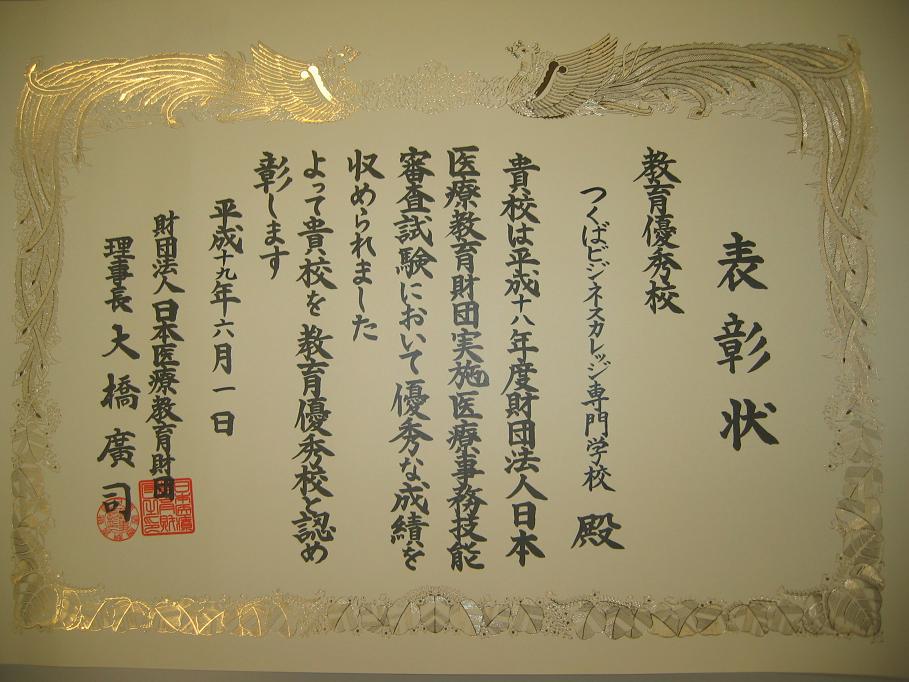 表彰状
教育優秀校
つくばビジネスカレッジ専門学校 殿
貴校は平成十八年度財団法人日本
医療教育財団実施医療事務技能
審査試験において優秀な成績を
収められました
よって貴校を教育優秀校と認め
彰します
平成十九年六月一日
財団法人日本医療教育財団
理事長 大橋廣司